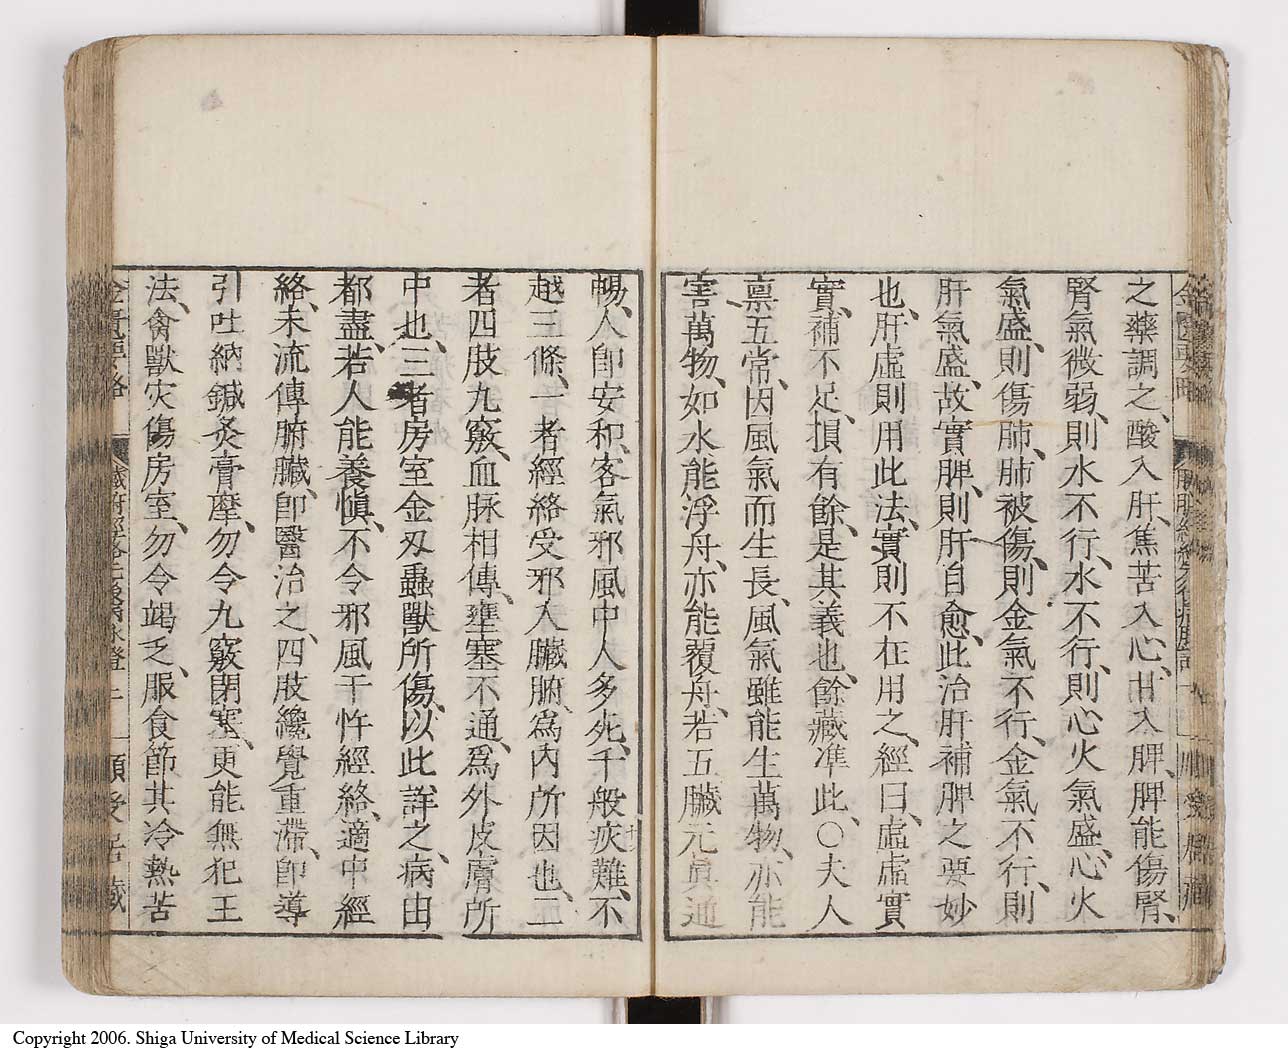 之藥調之、酸入肝、焦苦入心、甘入脾、脾能傷腎、
腎氣微弱、則水不行、水不行、則心火氣盛、心火
氣盛、則傷肺、肺被傷、則金氣不行、金氣不行、則
肝氣盛、故實脾、則肝自愈、此治肝補脾之要妙
也、肝虛則用此法、實則不在用之、經曰、虛虛實
實、補不足、損有餘、是其義也、餘藏準此、○夫人
稟五常、因風氣而生長、風氣雖能生萬物、亦能
害萬物、如水能浮舟、亦能覆舟、若五臟元眞通
暢、人卽安和、客氣邪風中人多死、千般疢難、不
越三條、一者經絡受邪入臟腑、爲内所因也、二
者四肢九竅、血脉相傳、壅塞不通、爲外皮膚所
中也、三者房室金刃蟲獸所傷、以此詳之、病由
都盡、若人能養愼、不令邪風干忤經絡、適中經
絡、未流傳腑臟、卽醫治之、四肢纔覺重滯、卽導
引吐納鍼灸膏摩、勿令九竅閉塞、更能無犯王
法、禽獸灾傷房室、勿令竭乏、服食節其冷熱苦
Copyright 2006. Shiga University of Medical Science Library